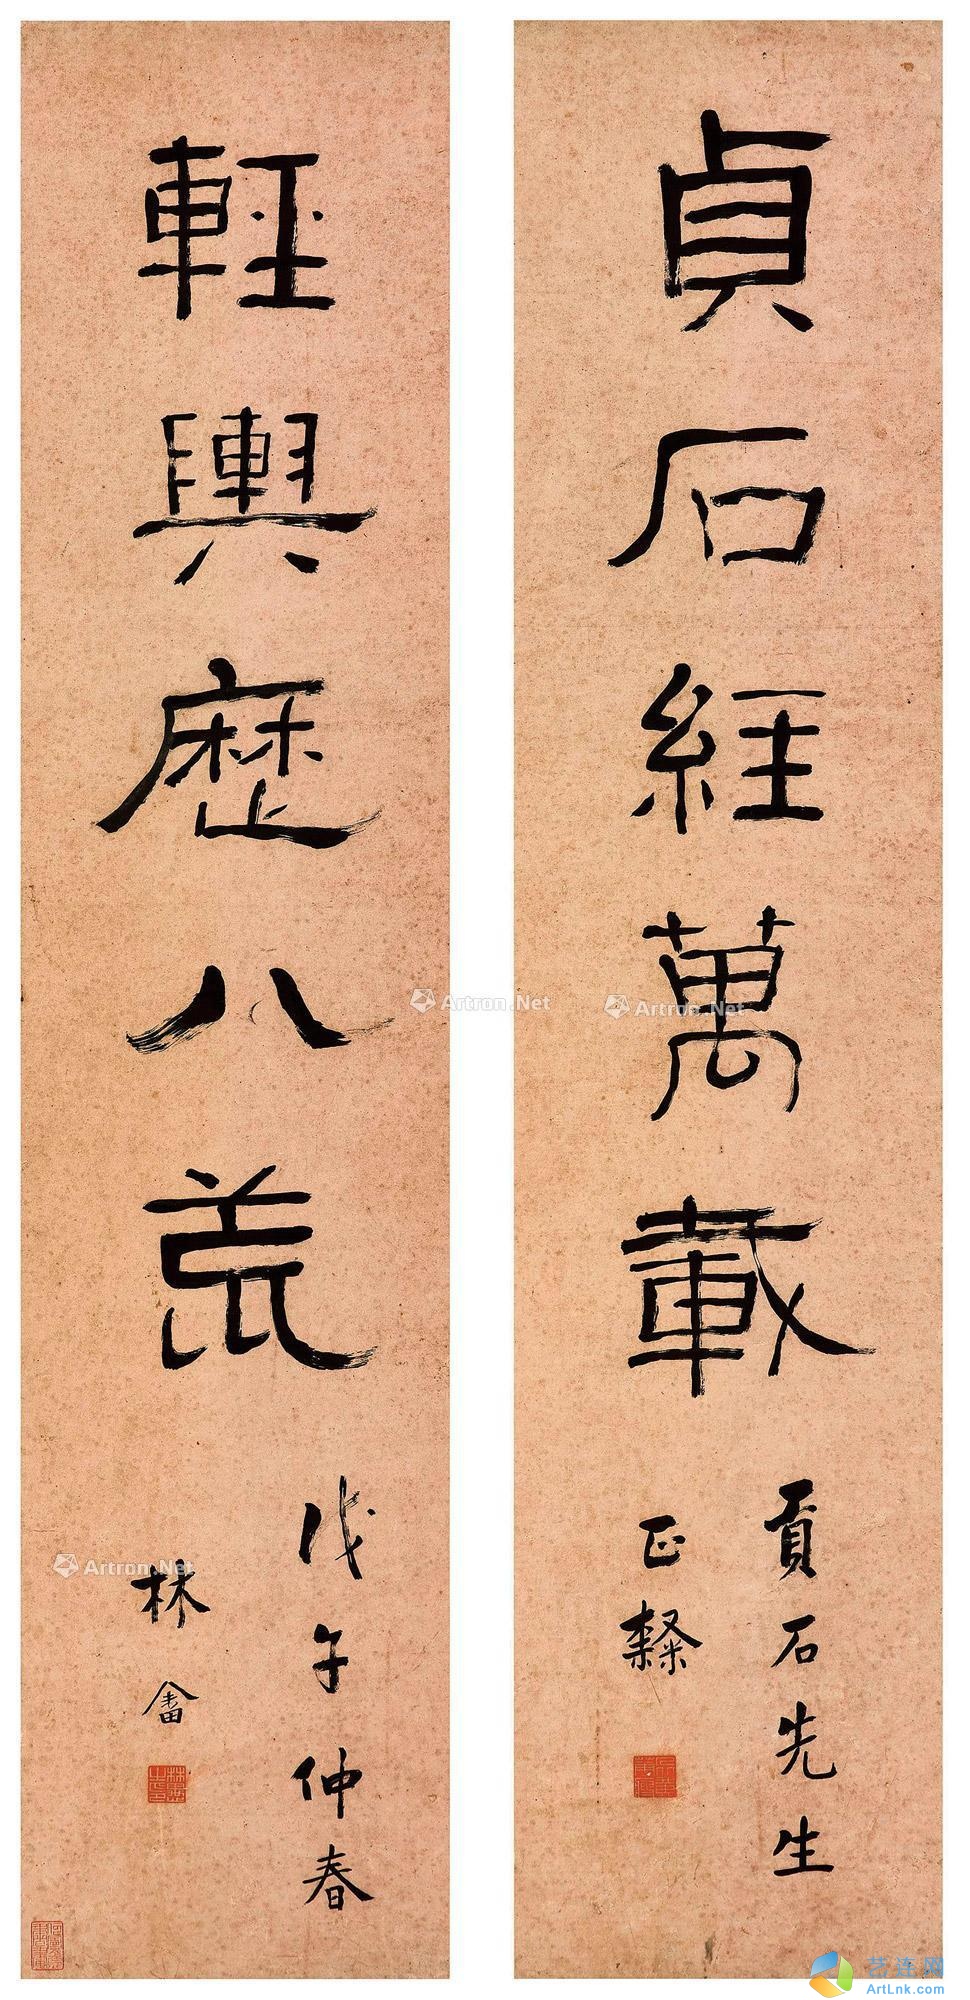 貞石經萬載
貢石先生
正䊛
輕輿歷八荒
戊午仲春
林畬
Artron.Net
Artron.Net
Artron.Net
艺连网
ArtLnk.com